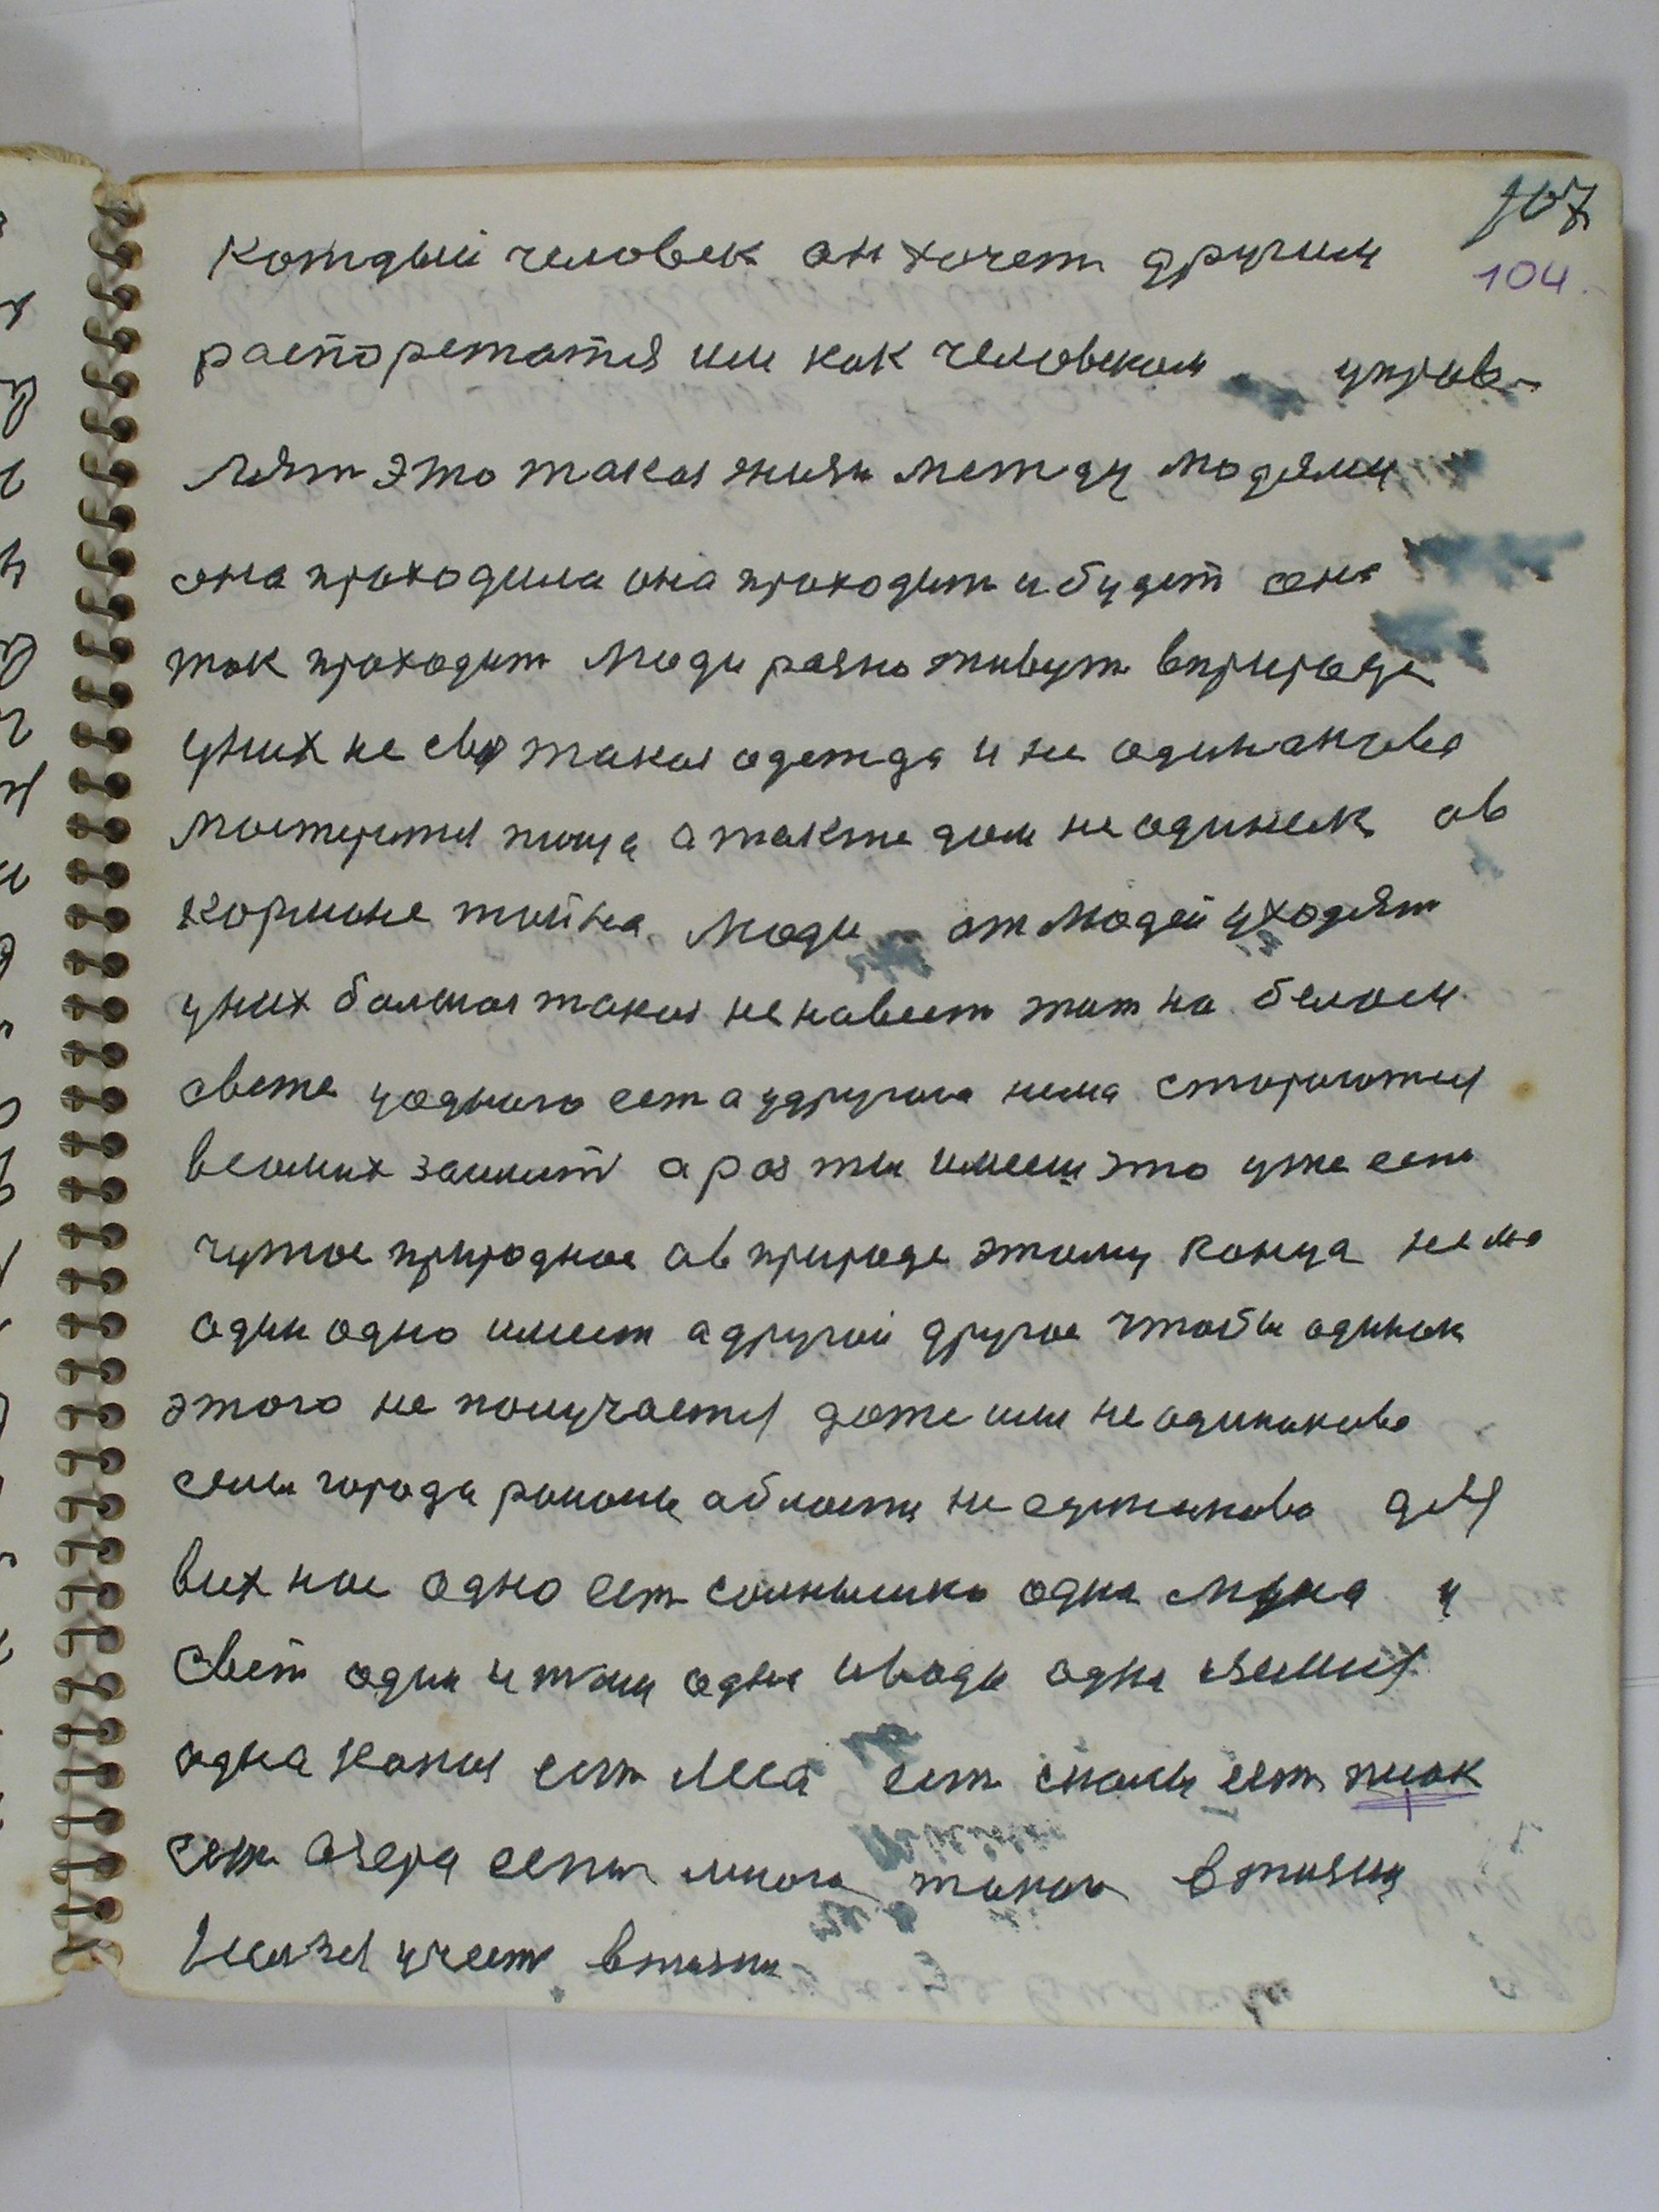 107
104.
котдый человек он хочет другим
распоретатся или как человеком управ-
лят это такая жизн метду людями
она проходила она проходит и будет она
так проходит люди разно живут вприроде
уних не своя такая одетда и не одинаково
мостерится пища атакте дом не одинак ав
кормоне тайна люди от людей уходят
уних болшая такая ненавест жит на белом
свете уодного ест аудругого нема стораютия
а раз ты имееш это уже есть
чутое природное ав природе этому конца нема
один одно имеет адругой другое чтобы одинак
этого не получается доте или не одинаково
села города районы области не одинаково для
вих нас одно ест солнышко одна луна и
свет один и тьма одна ивода одна изьмля
одна ест леса ест ест писок
сеть озера есть много таково втизни
нелзя учест втизни